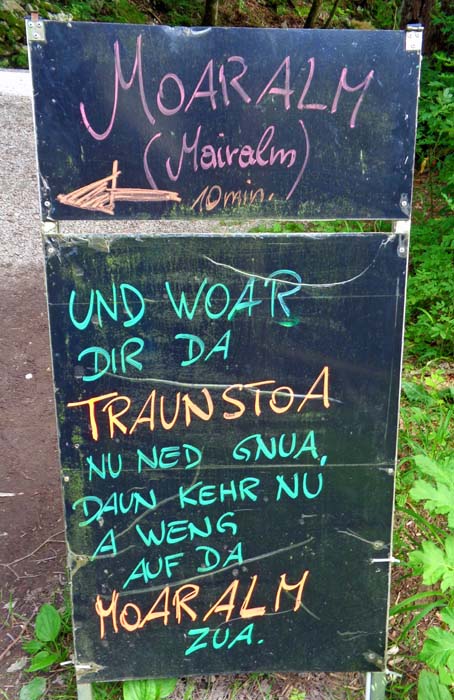 MOARALM
(Mairalm)
10 min.
UND WOAR
DIR DA
TRAUNSTOA
NU NED GNUA,
DAUN KEHR NU
A WENG
AUF DA
MOARALM
ZUA.